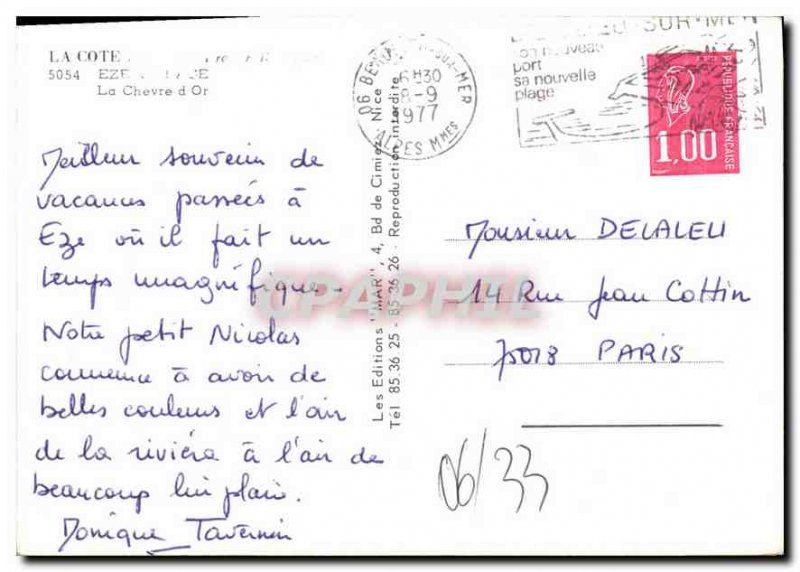 LA COTE
5054 EZE
La Chevre d Or
06 BE SUR-MER
16H30
8-9
1977
ALPES MMES
SUR-MER
son nouveau
port
sa nouvelle
plage
REPUBLIQUE FRANCAISE
1,00
Meilleur souvenir de
vacances passées à
Eze où il fait un
temps magnifique.
Notre petit Nicolas
commence à avoir de
belles couleurs et l'air
de la riviéra à l'air de
beaucoup lui plaire.
Monique Tavernier
Les Editions "MAR", 4, Bd de Cimiez Nice
Tél 85.36 25 - 85 36 26 - Reproduction interdire
Monsieur DELALEU
14 Rue Jean Cottin
75018 PARIS
06/33
CPAPHIL